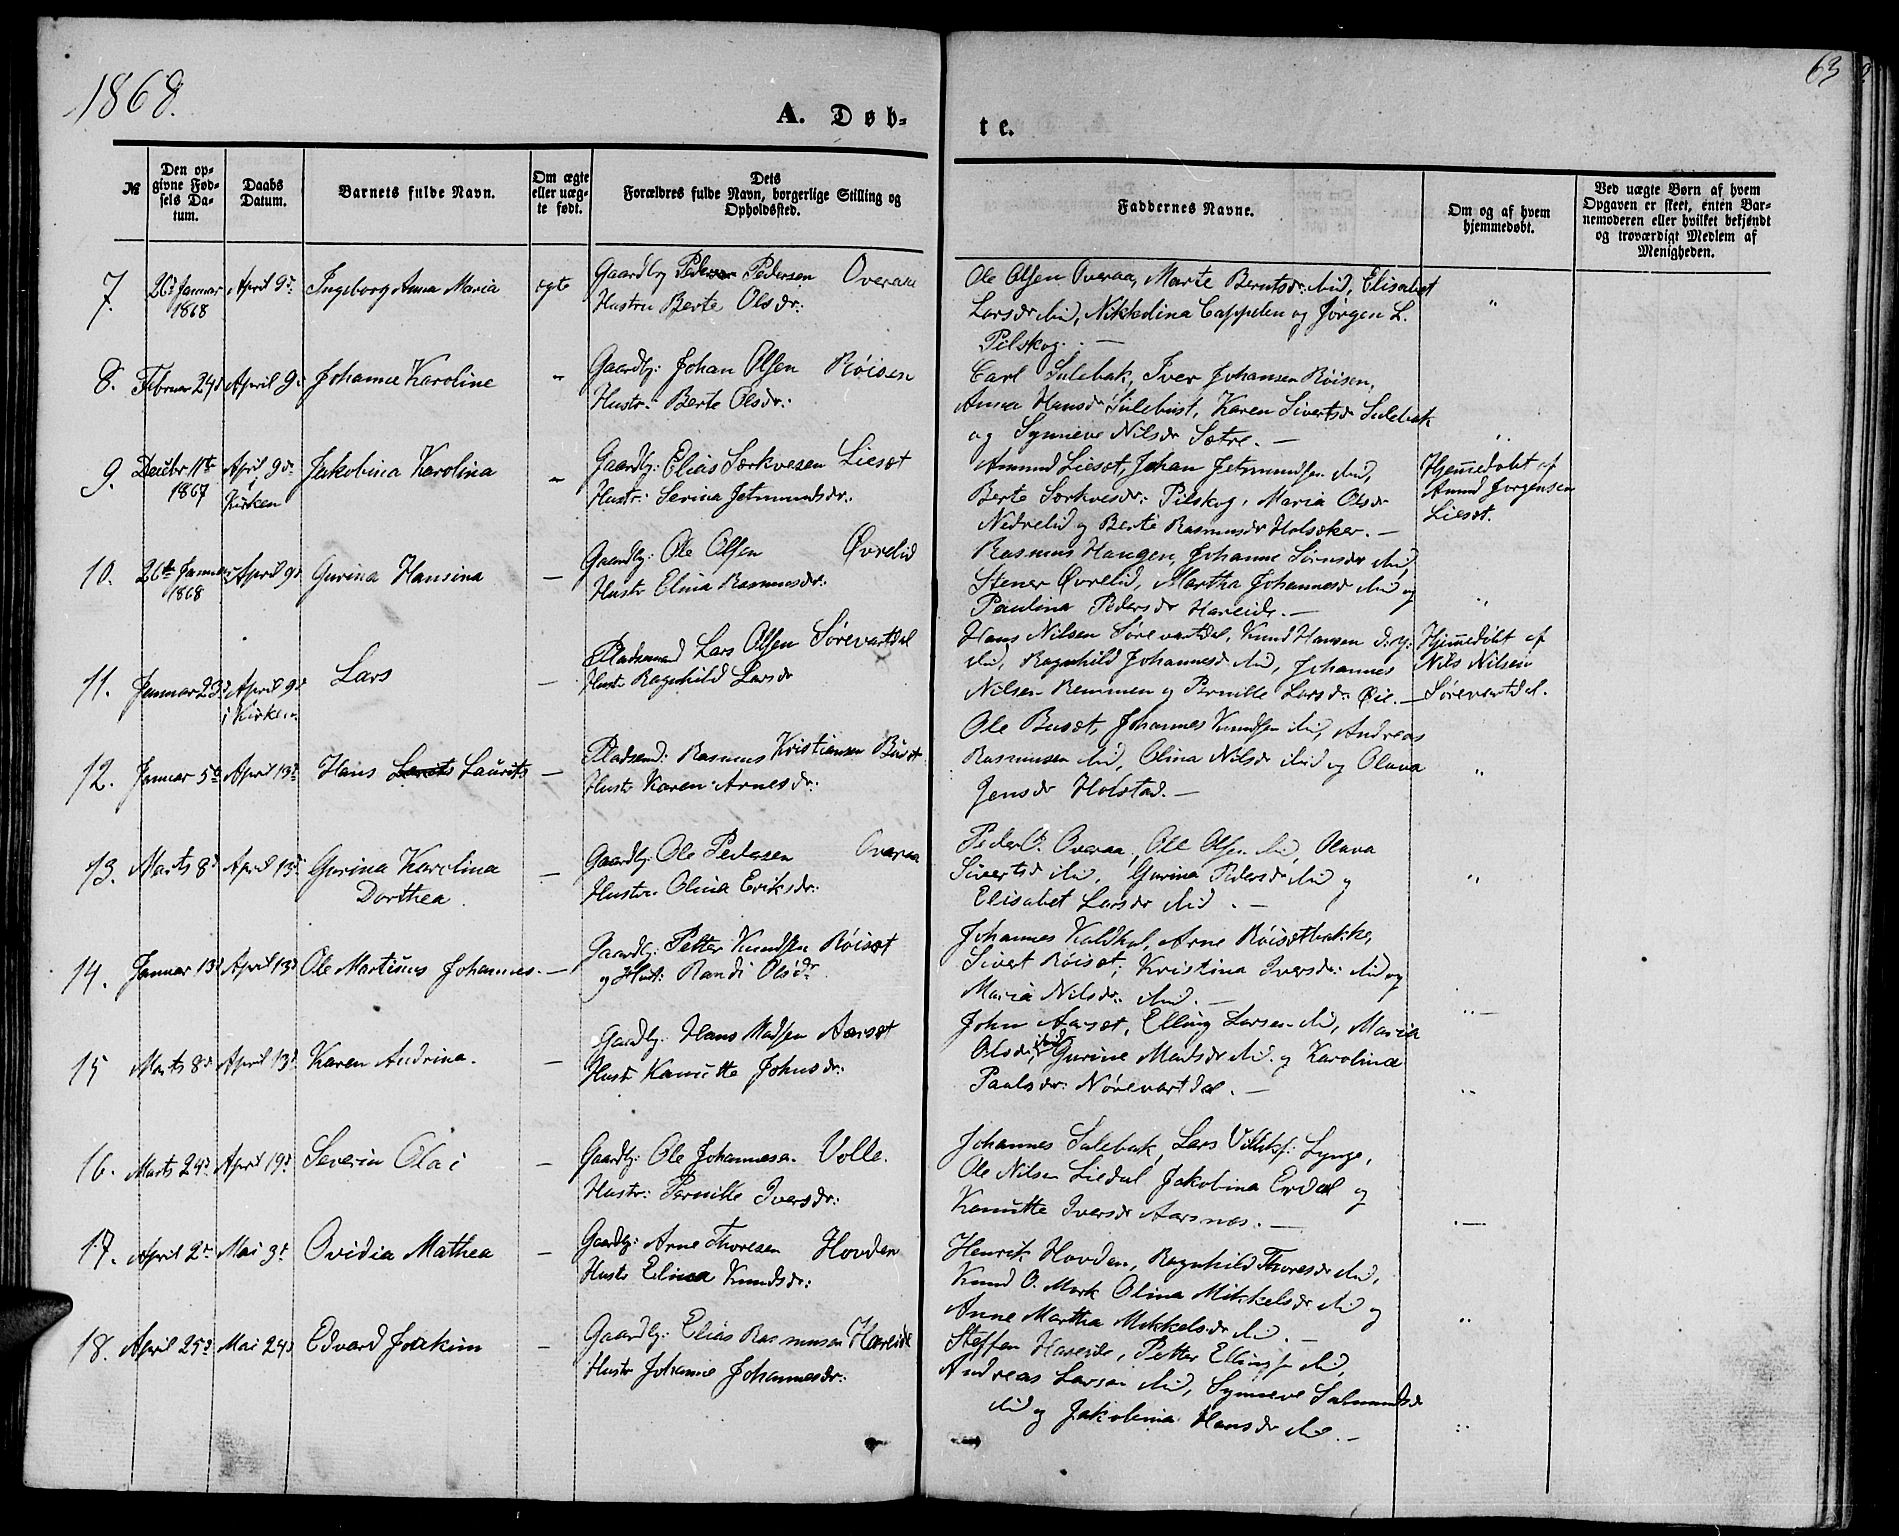 1868.
63
A. Døb-
te.
№
Den op-
givne Fød-
sels Da-
tum.
Daabs
Datum.
Barnets fulde Navn.
Om ægte
eller uæg-
te født.
Dets
Forældres fulde Navn, borgerlige Stilling og
Opholdssted.
Faddernes Navne.
Om og af hvem
hjemmedøbt.
Ved uægte Børn af hvem
Opgaven er skeet, enten Bar-
nemoderen eller hvilket bekjendt
og troværdigt Medlem af
Menigheden.
7. 26d Januar April 9d Ingeborg Anna Maria ægte Gaardbr Pedersen Overaa
1868 Hustru Berte Olsdr:
Ole Olsen Overaa, Marte Berntsdr. ibid, Elisabet
Larsdr ibid, Nikkolina Cappelen og Jørgen L.
Pilskog. —
8. Februar 24d April 9d Johanne Karoline " Gaardbr: Johan Olsen Röisen
Hustr: Berte Olsdr:
Carl Sulebak, Iver Johansen Röisen,
Anna Hansdr Sulebust, Karen Sivertsdr Sulebak
og Synneve Nilsdr Sætre. —
9. Decbr 11te April 9d Jakobina Karolina " Gaardbr: Elias Særkvesen Liesæt
1867 i Kirken Hustr: Serina Jetmundsdr:
Amund Liesæt, Johan Jetmundsen ibid,
Berte Særkvesdr: Pilskog, Maria Olsdr
Nedrelid og Berte Rasmusdr Holsæker. —
Hjemmedøbt af
Amund Jørgensen
Liesæt.
10. 26te Januar April 9d Gurina Hansina — Gaardbr: Ole Olsen Øvrelid
1868 Hustr Elina Rasmusdr:
Rasmus Haugen, Johanne Sörensdr ibid,
Stener Øvrelid, Martha Johannesdr ibid og
Paulina Pedersdr Hareide. —
11. Januar 23d April 9d Lars — Pladsmand Lars Olsen Sörevartdal
i Kirken Hustr Ragnhild Larsdr
Hans Nilsen Sörevartdal, Knud Hansen d.y.
ibid, Ragnhild Johannesdr ibid, Johannes
Nilsen Remmen og Pernille Larsdr: Øie. —
Hjemmedøbt af
Nils Nilsen
Sörevartdal.
12. Januar 5te April 13d Hans Laurits — Pladsmd: Rasmus Kristiansen Busæt
Hustr Karen Arnesdr:
Ole Busæt, Johannes Knudsen ibid, Andreas
Rasmussen ibid, Olina Nilsdr ibid og Olava
Jensdr Holstad. —
13. Marts 8d April 13d Gurina Karolina — Gaardbr: Ole Pedersen Overaa
Dorthea. Hustru Olina Eriksdr:
Peder O. Overaa, Ole Olsen ibid, Olava
Sivertsdr ibid, Gurina Pedersdr ibid og
Elisabet Larsdr ibid. —
14. Januar 13d April 13d Ole Martinus Johannes. — Gaardbr: Petter Knudsen Röisæt
og Hust: Randi Olsdr
Johannes Kaldhol, Arne Röisætbakke,
Sivert Röiset, Kristina Iversdr: ibid og
Maria Nilsdr: ibid. —
15 Marts 8d April 13d Karen Andrina. — Gaardbr. Hans Madsen Aarsæt
Hust Kanutte Johnsdr:
John Aarsæt, Elling Larsen ibid, Maria
Olsdr, ibid Gurine Madsdr ibid og Karolina
Paulsdr: Nörevartdal. —
16. Marts 24d April 19d Severin Olai — Gaardbr: Ole Johannesen Volle.
Hustr: Pernille Iversdr:
Johannes Sulebak, Lars Lynge,
Ole Nilsen Liedal Jakobina Erdal og
Kanutte Iversdr Aarsnæs. —
17. April 2d Mai 3d Ovidia Mathea — Gaardbr: Arne Thoresen Hovden
Hustr Elina Knudsdr:
Henrik Hovden, Ragnhild Thoresdr ibid,
Knud O. Mork Olina Mikkelsdr ibid og
Anne Martha Mikkelsdr ibid. —
18. April 25d Mai 24d Edvard Joakim — Gaardbr: Elias Rasmusen Hareide
Hustr Johanne Johannesdr:
Steffen Hareide, Petter Ellingsen ibid,
Andreas Larsen ibid, Synneve Salmundsdr
ibid og Jakobina Hansdr ibid. —